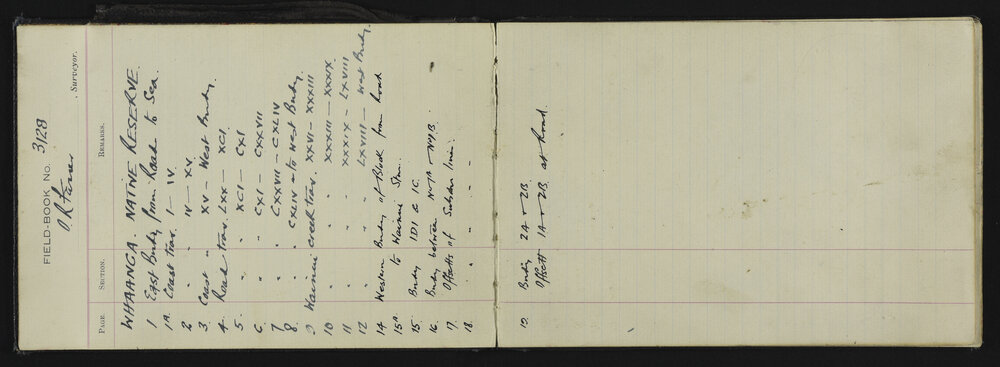 FIELD-BOOK No. 3128
Surveyor.
PAGE. SECTION. REMARKS.
WHAANGA. NATIVE RESERVE.
1 East Bndy from Road to Sea.
1A. Coast trav. I — IV.
2 " IV — XV
3. Coast " XV — West Bndy.
4. Road trav. LXX — XCI.
5. " XCI — CXI
6 " CXI — CXXVII
7 " CXXVII — CXLIV
8. " CXLIV — to West Bndy.
9 Wainui creek trav. XXVI — XXXIII
10 " " XXXIII — XXXIX
11 " " XXXIX — LXVIII
12 " " LXVIII — West Bndy.
14 Western Bndy of Block from road
15A to Wainui Stm.
15. Bndy 1D1 & 1C.
16. Bndy between No 1A — No 1B.
17. Offsetts of Subdvn lines.
18. " " "
19. Bndy 2A & 2B.
Offsett 1A & 2B at Road.